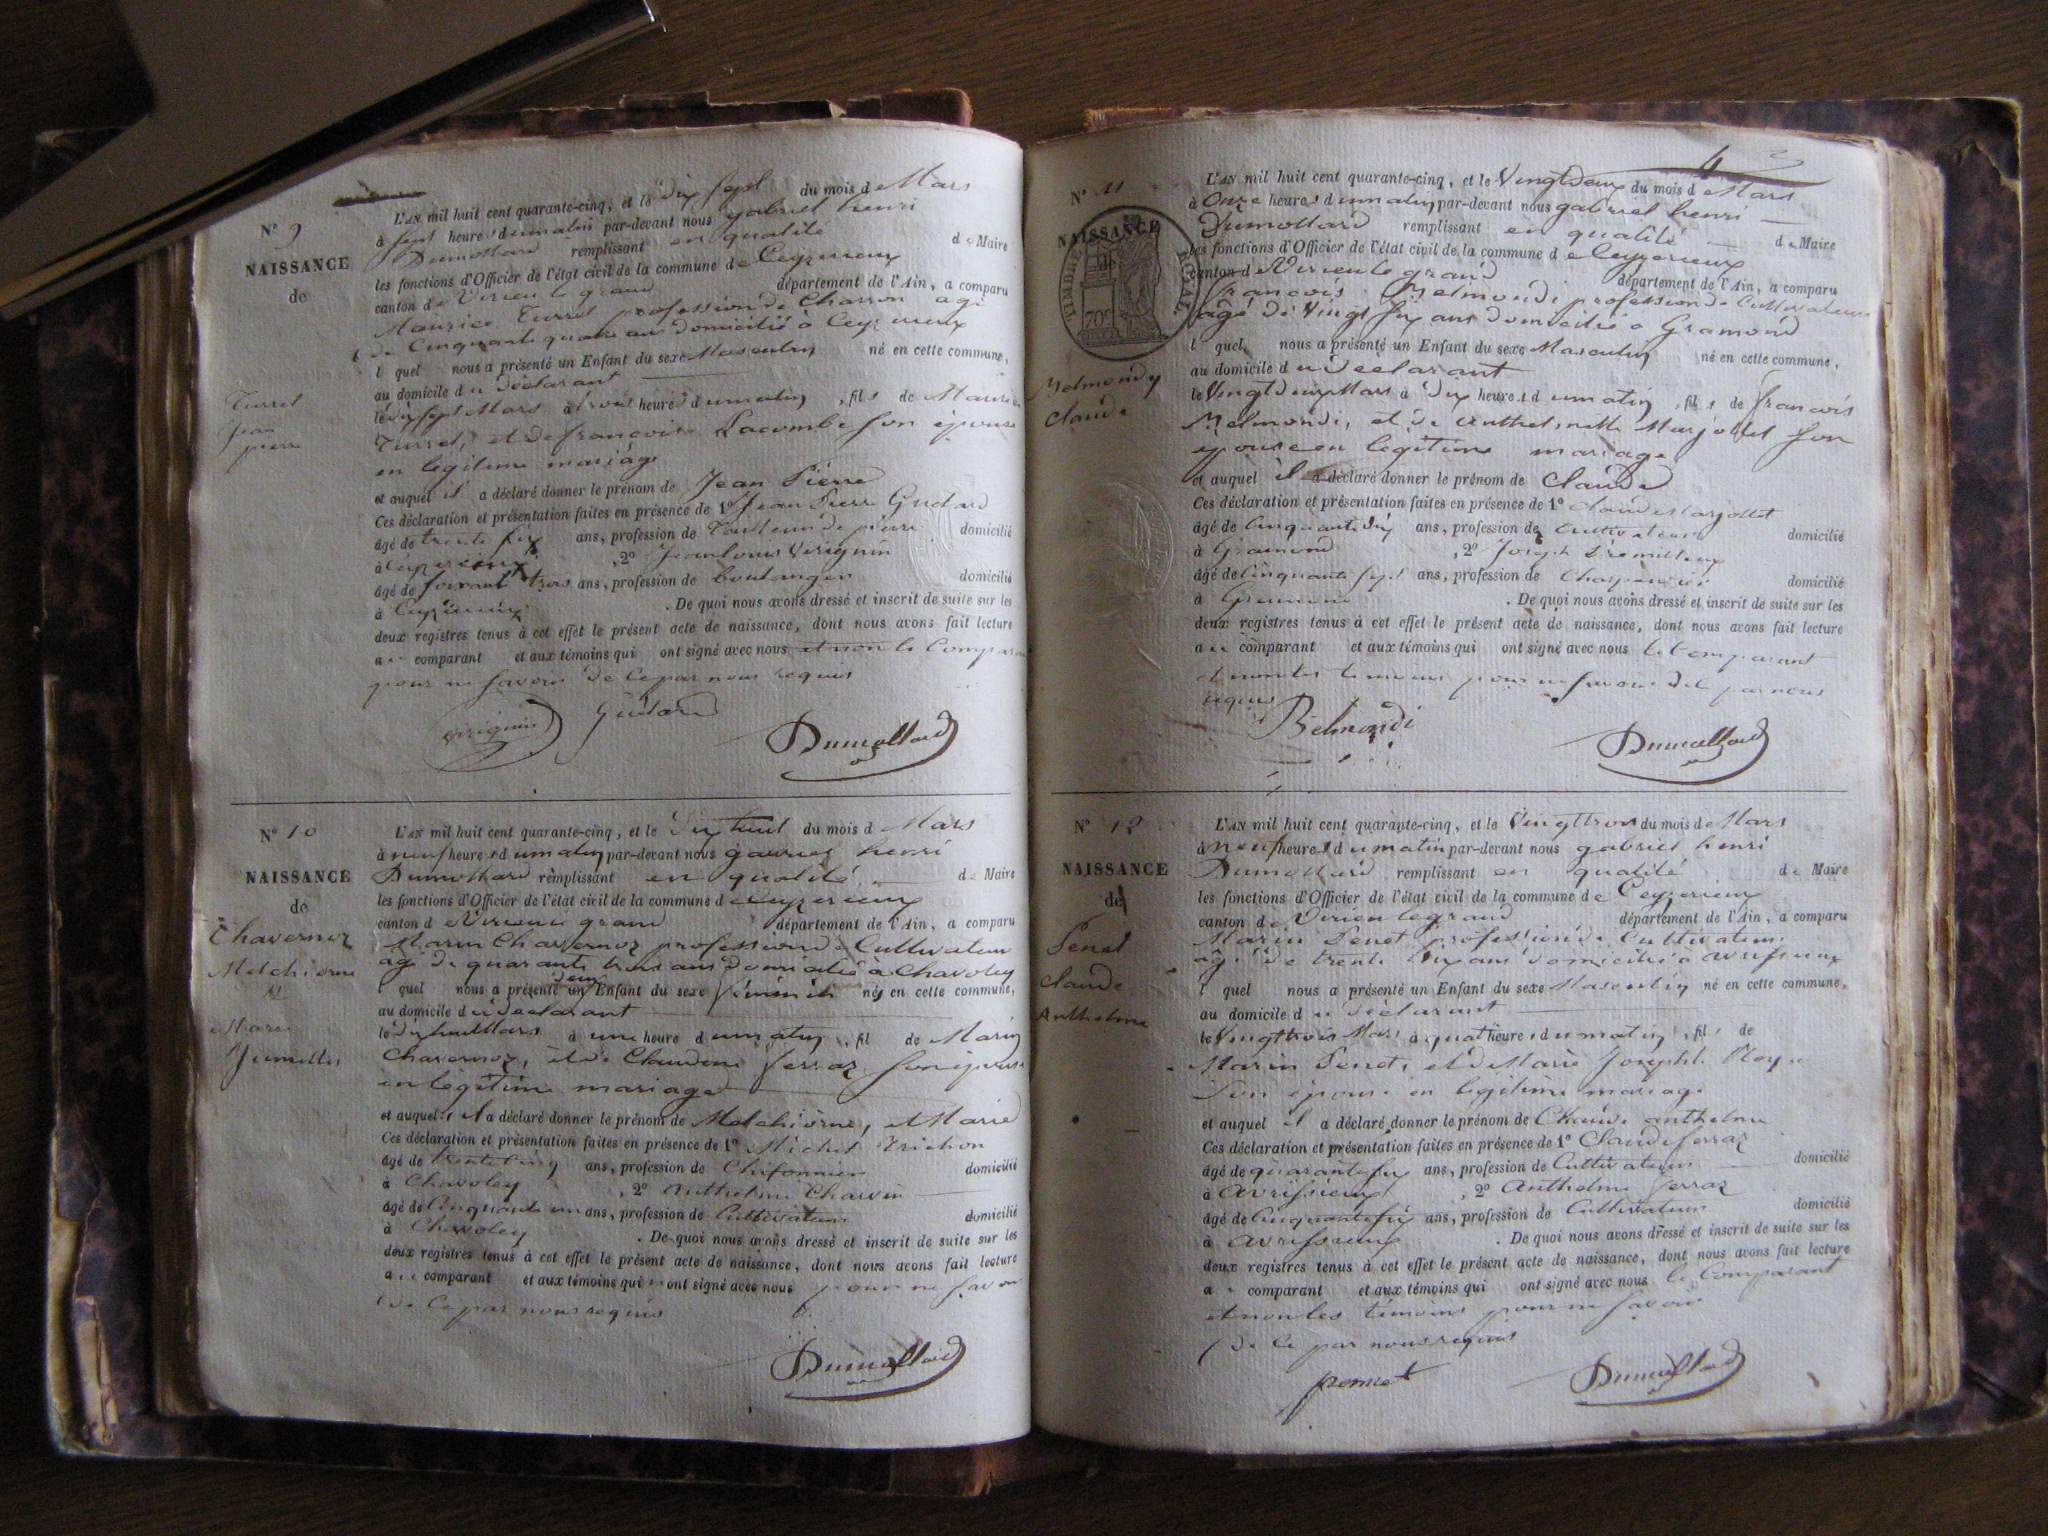 N° 9
NAISSANCE
de
Turrel
Jean
pierre
L'AN mil huit cent quarante-cinq, et le dix sept du mois d e Mars
à sept heures du matin par-devant nous gabriel henri
Dumollard remplissant en qualité d e Maire
les fonctions d'Officier de l'état civil de la commune d e Ceyzerieux
canton d e Virieu le grand département de l'Ain, a comparu
Maurice Turrel profession de Charron agé
de Cinquante quatre ans domicilié à Ceyzerieux
l equel nous a présenté un Enfant du sexe Masculin né en cette commune,
au domicile d u déclarant
le dix sept Mars à trois heures du matin, fils de Maurice
Turrel, et de françoise Lacombe son épouse
en légitime mariage
et auquel il a déclaré donner le prénom de Jean Pierre
Ces déclaration et présentation faites en présence de 1° Jean Pierre Guélard
âgé de trente six ans, profession de Tailleur de pierre domicilié
à Ceyzerieux, 2° Jean Louis Virignin
âgé de soixante trois ans, profession de boulanger domicilié
à Ceyzerieux. De quoi nous avons dressé et inscrit de suite sur les
deux registres tenus à cet effet le présent acte de naissance, dont nous avons fait lecture
au comparant et aux témoins qui ont signé avec nous et non le Comparant
pour ne savoir de ce par nous requis
virignin Guélard
Dumollard
N° 10
NAISSANCE
de
Chavernoz
Melchiorne
et
Marie
Jumelles
L'AN mil huit cent quarante-cinq, et le dix huit du mois d e Mars
à neuf heures du matin par-devant nous gabriel henri
Dumollard remplissant en qualité d e Maire
les fonctions d'Officier de l'état civil de la commune d e Ceyzerieux
canton d e Virieu le grand département de l'Ain, a comparu
Marin Chavernoz profession de Cultivateur
agé de quarante trois ans domicilié à Chavoley
l equel nous a présenté un deux Enfant du sexe féminin nés en cette commune,
au domicile d u déclarant
le dix huit Mars à une heure du matin, fil de Marin
Chavernoz, et de Claudine ferraz son épouse
en légitime mariage
et auquel il a déclaré donner le prénom de Melchiorne, et Marie
Ces déclaration et présentation faites en présence de 1° Michel Trichon
âgé de trente cinq ans, profession de Chifonnier domicilié
à Chavoley, 2° Anthelme Charvin
âgé de Cinquante un ans, profession de Cultivateur domicilié
à Chavoley. De quoi nous avons dressé et inscrit de suite sur les
deux registres tenus à cet effet le présent acte de naissance, dont nous avons fait lecture
au comparant et aux témoins qui n'ont signé avec nous pour ne savoir
de ce par nous requis
Dumollard
4
N° 11
NAISSANCE
de
TIMBRE ROYAL
70c
Belmondy
Claude
L'AN mil huit cent quarante-cinq, et le Vingt deux du mois d e Mars
à Onze heures du matin par-devant nous gabriel henri
Dumollard remplissant en qualité d e Maire
les fonctions d'Officier de l'état civil de la commune d e Ceyzerieux
canton d e Virieu le grand département de l'Ain, a comparu
françois Belmondi profession de Cultivateur
agé de Vingt six ans domicilié à Gramond
l equel nous a présenté un Enfant du sexe Masculin né en cette commune,
au domicile d u déclarant
le Vingt deux Mars à dix heures du matin, fils de françois
Belmondi, et de Anthelmette Marjollet son
épouse en légitime mariage
et auquel il a déclaré donner le prénom de Claude
Ces déclaration et présentation faites en présence de 1° Claude Marjollet
âgé de Cinquante dix ans, profession de Cultivateur domicilié
à Gramond, 2° Joseph Premillieux
âgé de Cinquante sept ans, profession de Charpentier domicilié
à Gramond. De quoi nous avons dressé et inscrit de suite sur les
deux registres tenus à cet effet le présent acte de naissance, dont nous avons fait lecture
au comparant et aux témoins qui ont signé avec nous le Comparant
et non les temoins pour ne savoir de ce par nous
requis
Belmondi
Dumollard
N° 12
NAISSANCE
de
Penet
Claude
Anthelme
L'AN mil huit cent quarante-cinq, et le Vingt trois du mois d e Mars
à neuf heures du matin par-devant nous gabriel henri
Dumollard remplissant en qualité d e Maire
les fonctions d'Officier de l'état civil de la commune d e Ceyzerieux
canton d e Virieu le grand département de l'Ain, a comparu
Marin Penet profession de Cultivateur
agé de trente dix ans domicilié à avrissieux
l equel nous a présenté un Enfant du sexe Masculin né en cette commune,
au domicile d u déclarant
le Vingt trois Mars à quatre heures du matin, fils de
Marin Penet, et de Marie Josephte
Son épouse en legitime mariage
et auquel il a déclaré donner le prénom de Claude anthelme
Ces déclaration et présentation faites en présence de 1° Claude ferraz
âgé de quarante six ans, profession de Cultivateur domicilié
à avrissieux, 2° Anthelme ferraz
âgé de Cinquante six ans, profession de Cultivateur domicilié
à avrissieux. De quoi nous avons dressé et inscrit de suite sur les
deux registres tenus à cet effet le présent acte de naissance, dont nous avons fait lecture
au comparant et aux témoins qui ont signé avec nous le Comparant
et non les témoins pour ne savoir
de ce par nous requis
pennet
Dumollard